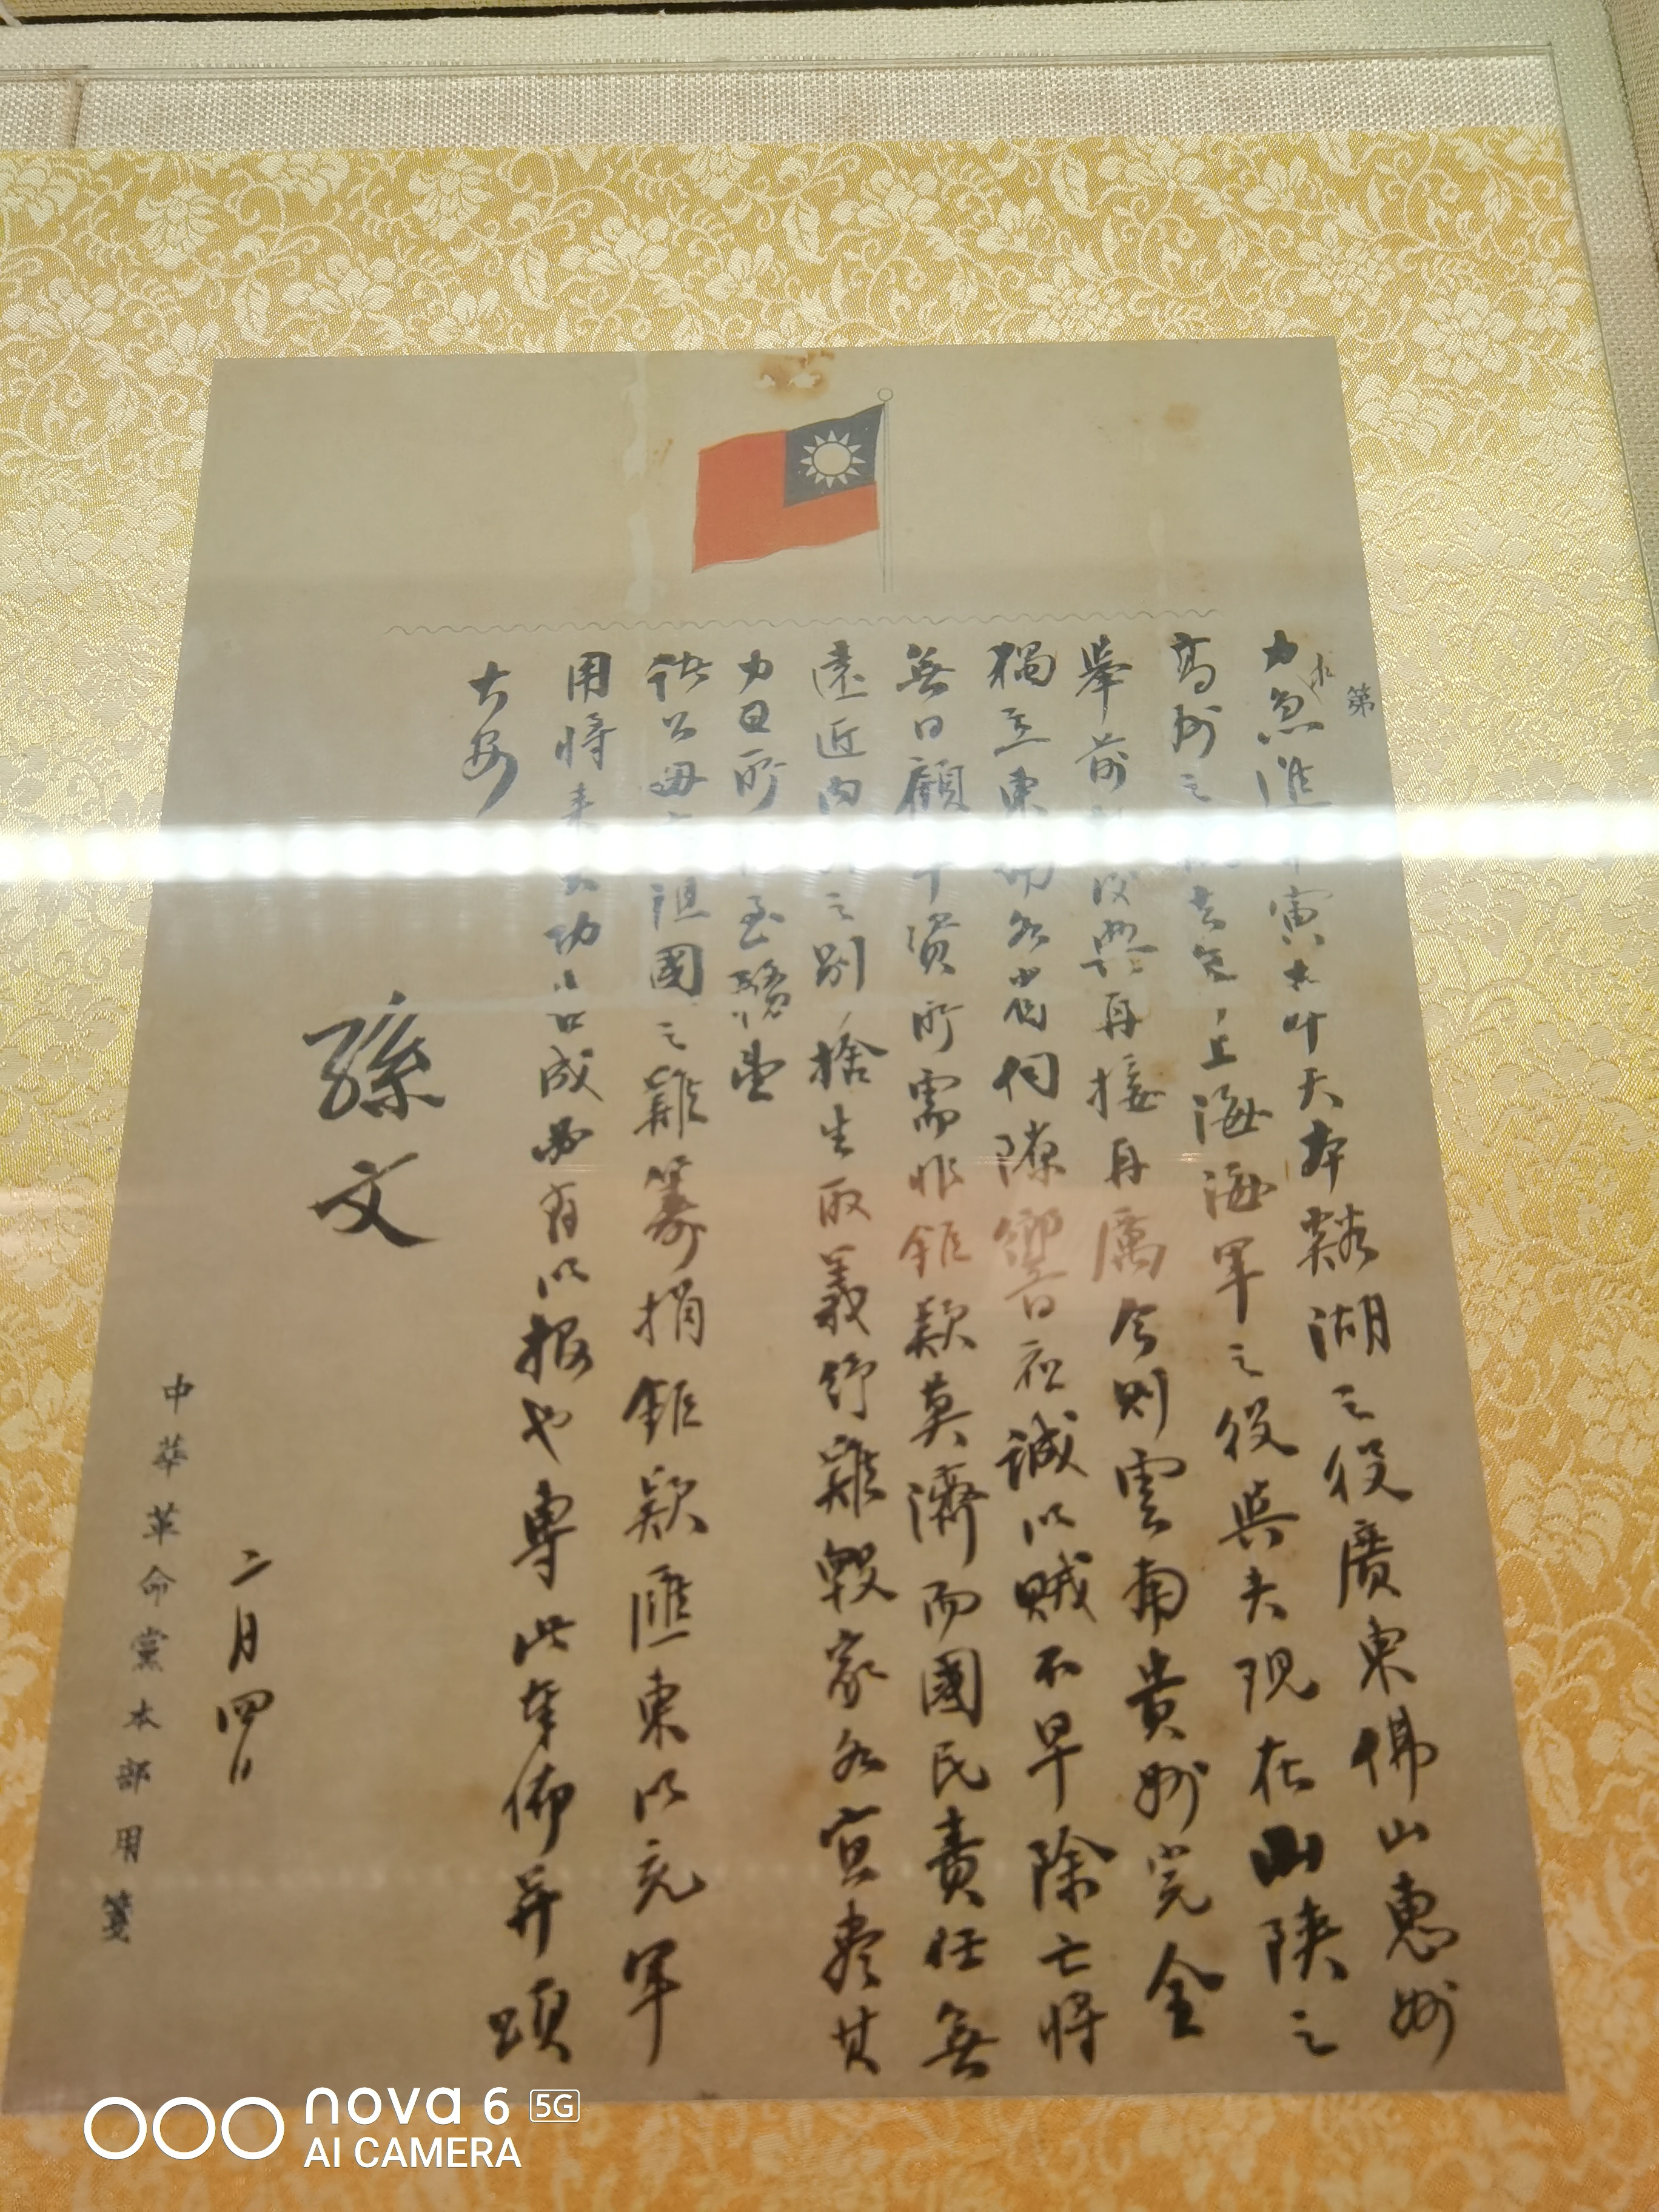 第
力急進 寅 大 叶 天 本 谿 湖 之 役 廣 東 佛 山 惠 州
高州之 去年 上海海軍之役與夫現在山陝之
舉前 後 興再接再厲今則雲南貴州完全
獨立東 各省伺隙響應誠以賊不早除亡將
無日顧軍資所需非鉅款莫濟而國民責任無
遠近內外之別捨生取義紓難毀家各宜盡其
力日所 至 務望
諸公毋忘祖國之難籌捐鉅款匯東以充軍
用將來 功告成必有以報也專此奉佈并頌
大安
孫文
二月四日
中華革命黨本部用箋
nova 6 5G
AI CAMERA